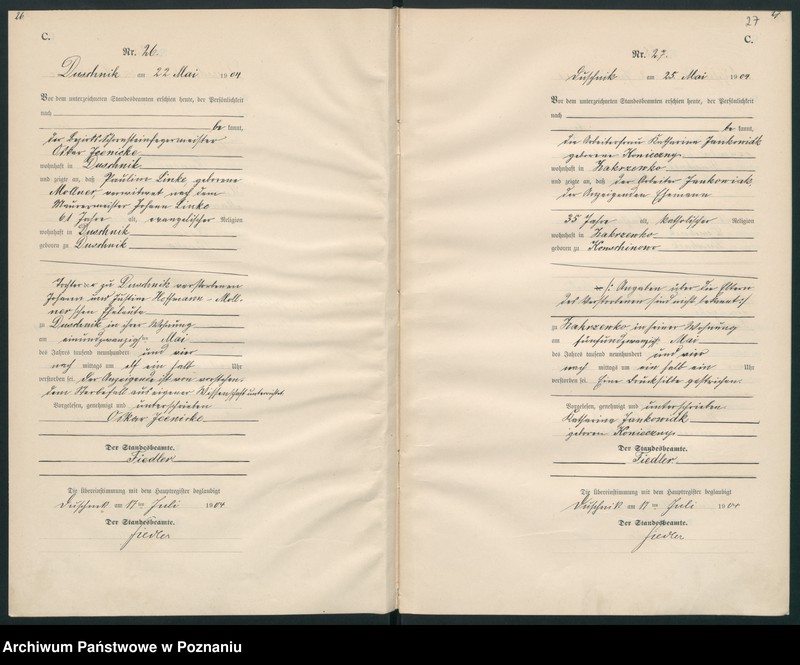 26
C.
Nr. 26.
Duschnik am 22 Mai 1904
Vor dem unterzeichneten Standesbeamten erschien heute, der Persönlichkeit
nach
be kannt,
der Bezirksschornsteinfegermeister
Oskar Jeenicke
wohnhaft in Duschnik
und zeigte an, daß Pauline Linke geborene
Mollner, verwitwet nach dem
Maurermeister Johann Linke
61 Jahre alt, evangelischer Religion
wohnhaft in Duschnik
geboren zu Duschnik
Tochter der zu Duschnik verstorbenen
Johann und Justine Hoffmann - Moll-
ner'schen Eheleute
zu Duschnik in ihrer Wohnung
am einundzwanzigsten Mai
des Jahres tausend neunhundert und vier
nach mittags um elf ein halb Uhr
verstorben sei. Der Anzeigende ist von vorstehen-
dem Sterbefall aus eigener Wissenschaft unterrichtet
Vorgelesen, genehmigt und unterschrieben
Oskar Jeenicke
Der Standesbeamte.
Fiedler
Die Übereinstimmung mit dem Hauptregister beglaubigt
Duschnik am 11ten Juli 1904
Der Standesbeamte.
Fiedler
27
C.
Nr. 27.
Duschnik am 25. Mai 1904
Vor dem unterzeichneten Standesbeamten erschien heute, der Persönlichkeit
nach
be kannt,
die Arbeiterfrau Katharina Jankowiak
geborene Konieczny
wohnhaft in Zakrzewko
und zeigte an, daß der Arbeiter Jankowiak
der Anzeigenden Ehemann
35 Jahre alt, katholischer Religion
wohnhaft in Zakrzewko
geboren zu
/: Angaben über die Eltern
des Verstorbenen sind nicht bekannt :/
zu Zakrzewko in seiner Wohnung
am fünfundzwanzigsten Mai
des Jahres tausend neunhundert und vier
nach mittags um ein halb ein Uhr
verstorben sei. Eine Drucksilbe gestrichen.
Vorgelesen, genehmigt und unterschrieben
Katharina Jankowiak
geboren Konieczny
Der Standesbeamte.
Fiedler
Die Übereinstimmung mit dem Hauptregister beglaubigt
Duschnik am 11ten Juli 1904
Der Standesbeamte.
Fiedler
Archiwum Państwowe w Poznaniu